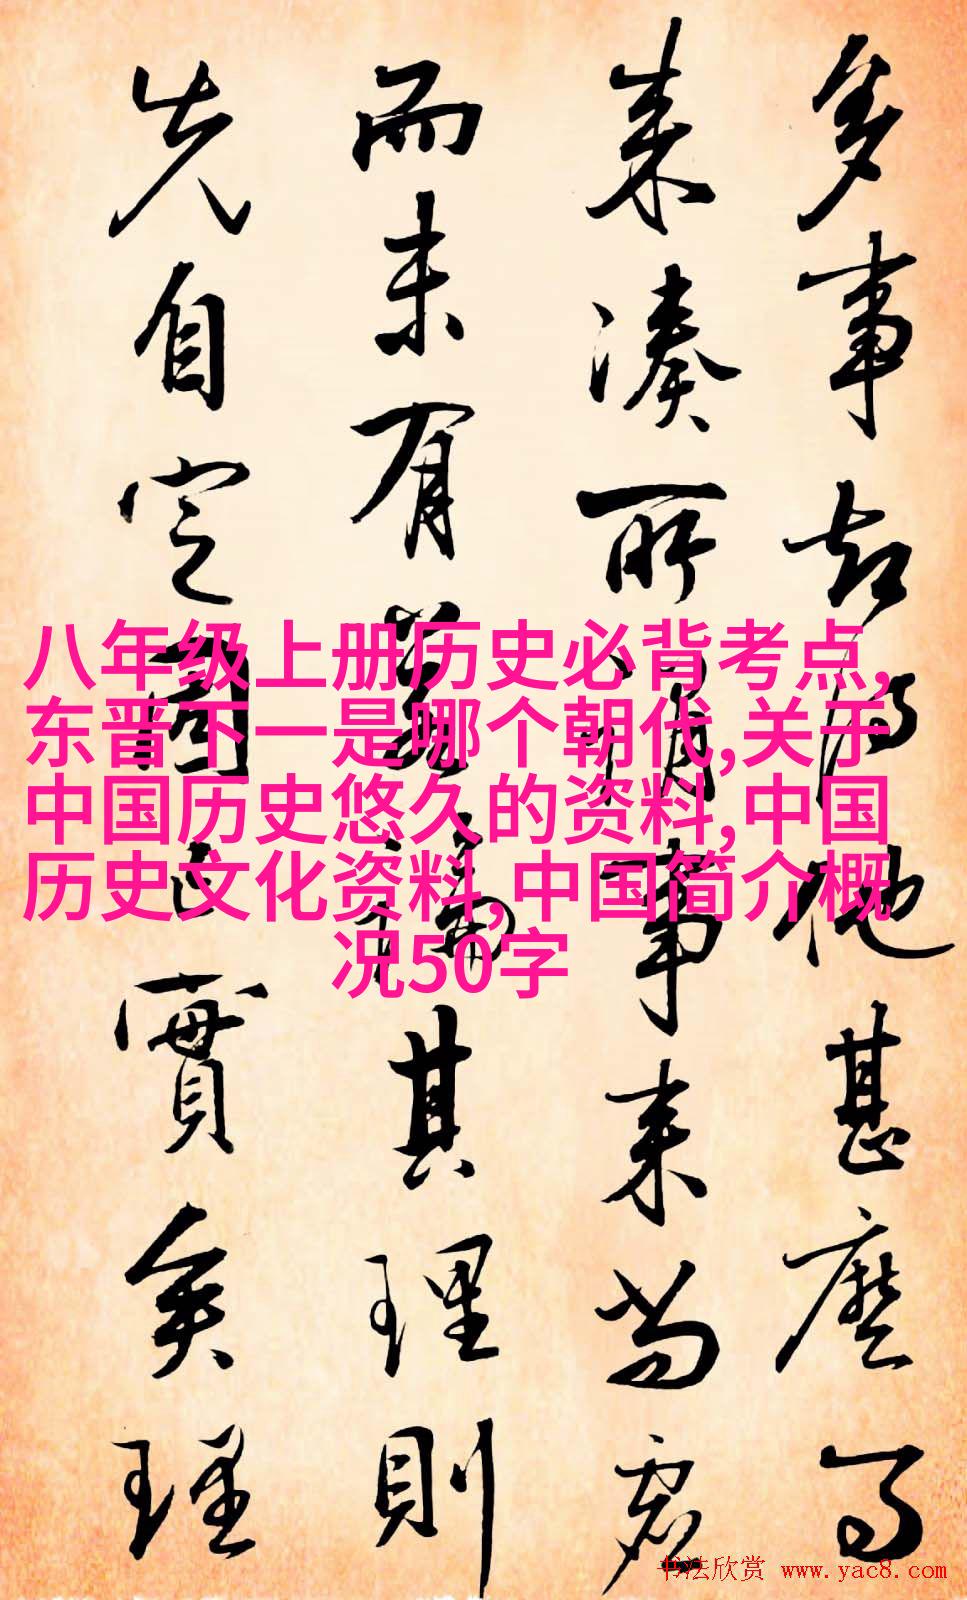 多事却得他甚麼
来湊所謂事来当
而未有其理則
先自定固已實矣理
八年级上册历史必背考点,
东晋下一是哪个朝代,关于
中国历史悠久的资料,中国
历史文化资料,中国简介概
况50字
书法欣赏 www.yac8.com